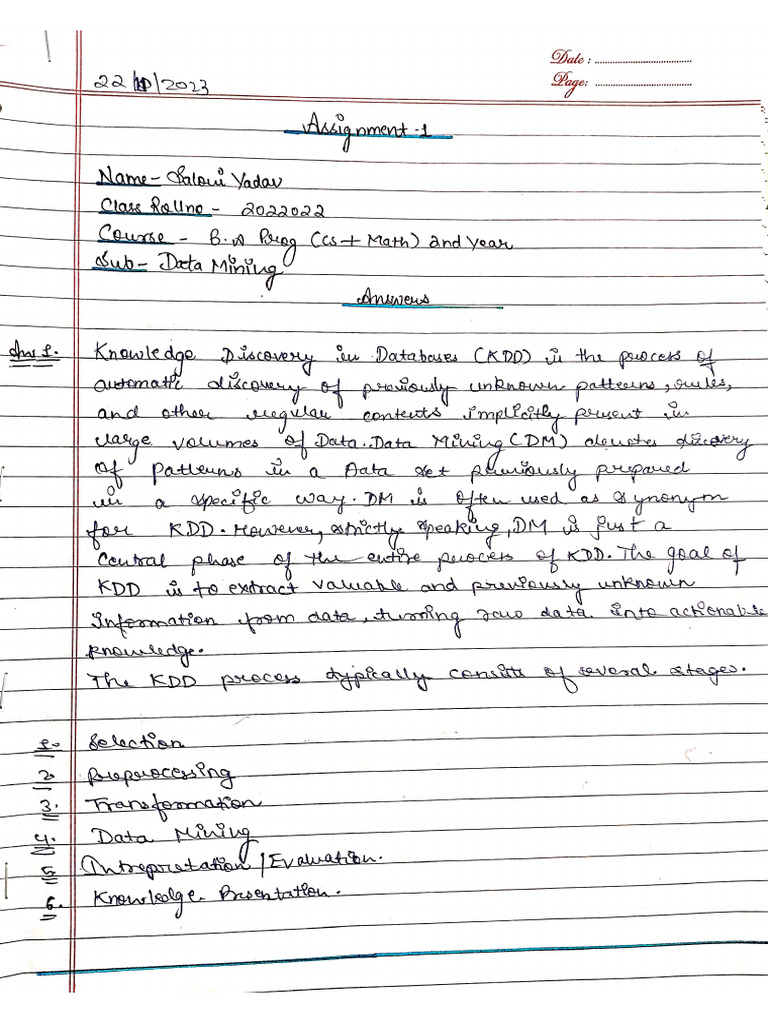 Date : ..................................
Page: ..................................
22/10/2023
Assignment-1
Name - Saloni Yadav
Class Rollno - 2022022
Course - B.A Prog (CS + Math) 2nd Year
Sub - Data Mining
Answers
Ans 1. Knowledge Discovery in Databases (KDD) is the process of
automatic discovery of previously unknown patterns, rules,
and other regular contents implicitly present in
large volumes of Data. Data Mining (DM) denotes discovery
of patterns in a Data set previously prepared
in a specific way. DM is often used as synonym
for KDD. However, strictly speaking, DM is just a
central phase of the entire process of KDD. The goal of
KDD is to extract valuable and previously unknown
information from data, turning raw data into actionable
knowledge.
The KDD process typically consists of several stages.
1. Selection
2. Preprocessing
3. Transformation
4. Data Mining
5. Intrepretation / Evaluation.
6. Knowledge Presentation.